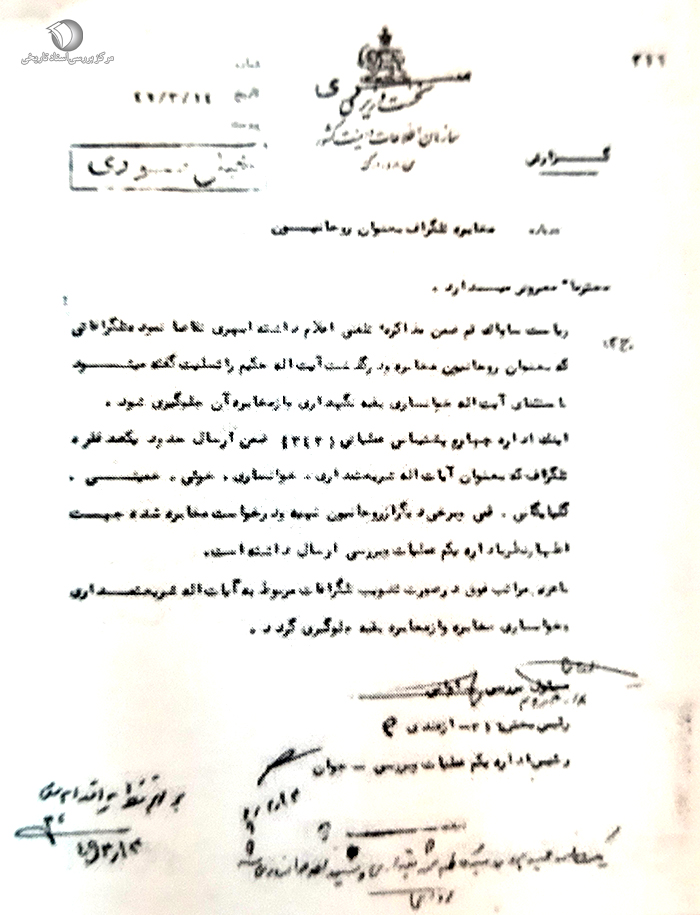 مرکز بررسی اسناد تاریخی
۳۱۶
شماره
تاریخ ۴۹/۳/۱۴
پیوست
نخست وزیری
سازمان اطلاعات و امنیت کشور
س.ا.و.ا.ک
گزارش
درباره مخابره تلگراف بعنوان روحانیون
محترما" معروض میدارد .
ریاست ساواک قم ضمن مذاکره تلفنی اعلام داشته اسهری تقاضا نمود تلگرافاتی
که بعنوان روحانیون مخابره و درگذشت آیت اله حکیم را تسلیت گفته میشود
با ستثنای آیت اله خوانساری بقیه نگهداری و از مخابره آن جلوگیری شود .
اینک اداره چهارم پشتیبانی عملیاتی (۳۴۳) ضمن ارسال حدود یکصد فقره
تلگراف که بعنوان آیات اله شریعتمداری ، خوانساری ، خوئی ، خمینی ،
گلپایگانی ، قمی و برخی دیگر از روحانیون تهیه و درخواست مخابره شده جهت
اظهارنظر باداره یکم عملیات و بررسی ارسال داشته است .
با عرض مراتب فوق در صورت تصویب تلگرافات مربوط به آیات اله شریعتمداری
و خوانساری مخابره و از مخابره بقیه جلوگیری گردد .
رئیس بخش ازغندی
رئیس اداره یکم عملیات و بررسی - جوان